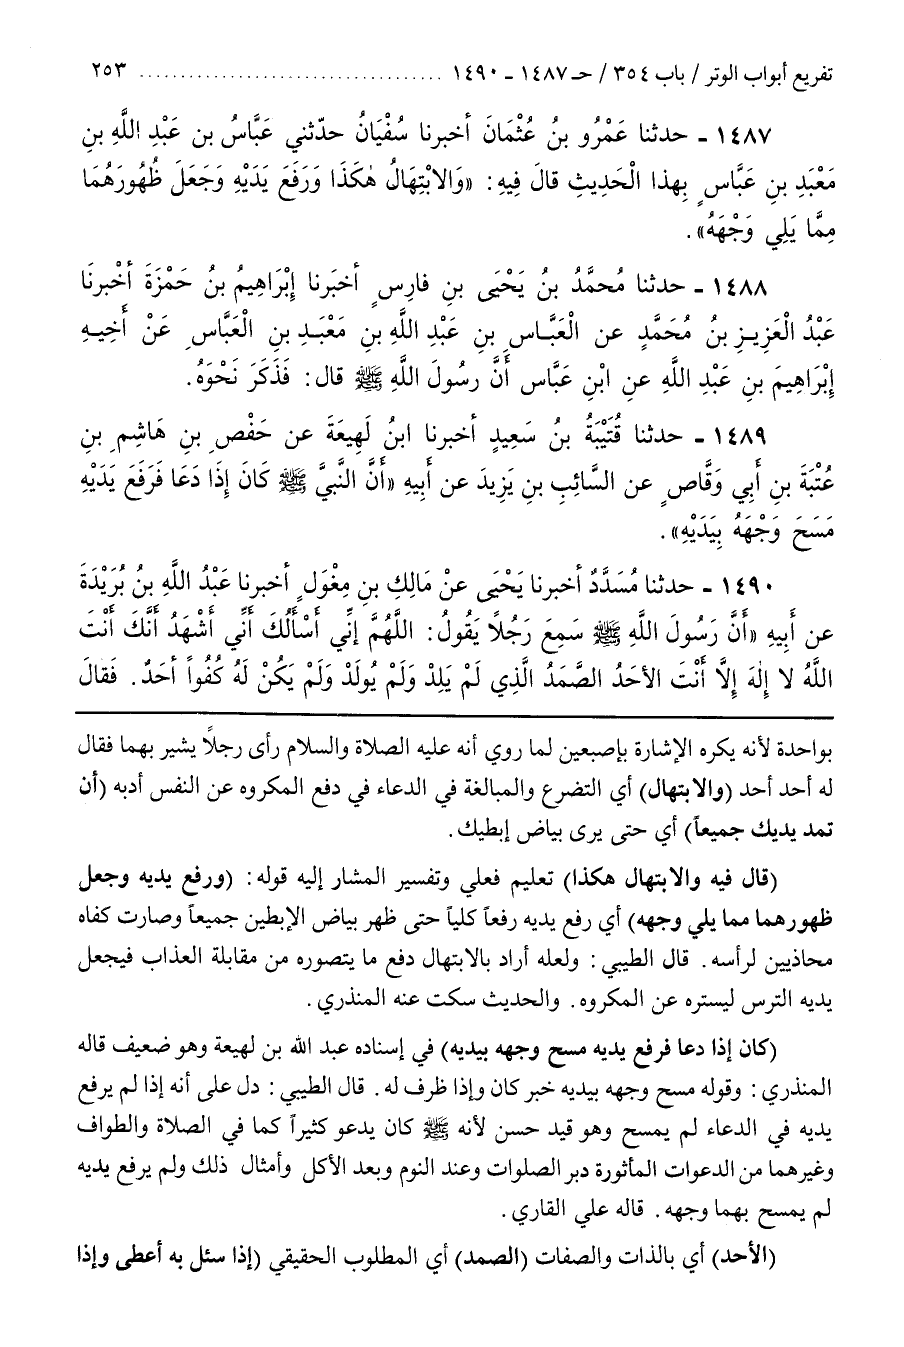 تفريع أبواب الوتر / باب ٣٥٤ / حـ ١٤٨٧ ـ ١٤٩٠ .................................... ٢٥٣
١٤٨٧ ـ حدثنا عَمْرُو بنُ عُثْمَانَ أخبرنا سُفْيَانُ حدّثني عَبَّاسُ بن عَبْدِ اللَّهِ بنِ
مَعْبَدِ بنِ عَبَّاسٍ بِهذا الْحَدِيثِ قالَ فِيهِ: «وَالابْتِهَالُ هٰكَذَا وَرَفَعَ يَدَيْهِ وَجَعَلَ ظُهُورَهُمَا
مِمَّا يَلِي وَجْهَهُ».
١٤٨٨ ـ حدثنا مُحمَّدُ بنُ يَحْيَى بنِ فارِسٍ أخبَرنا إبْرَاهِيمُ بنُ حَمْزَةَ أخْبرنَا
عَبْدُ الْعَزِيزِ بنُ مُحَمَّدٍ عن الْعَبَّاسِ بنِ عَبْدِ اللَّهِ بنِ مَعْبَدِ بنِ الْعَبَّاسِ عَنْ أخِيهِ
إبْرَاهِيمَ بنِ عَبْدِ اللَّهِ عن ابْنِ عَبَّاس أنَّ رسُولَ اللَّهِ ﷺ قال: فَذَكَرَ نَحْوَهُ.
١٤٨٩ ـ حدثنا قُتَيْبَةُ بنُ سَعِيدٍ أخبرنا ابنُ لَهِيعَةَ عن حَفْصِ بنِ هَاشِمِ بنِ
عُتْبَةَ بنِ أبي وَقَّاصٍ عن السَّائِبِ بنِ يَزِيدَ عن أبِيهِ «أنَّ النَّبيَّ ﷺ كَانَ إذَا دَعَا فَرَفَعَ يَدَيْهِ
مَسَحَ وَجْهَهُ بِيَدَيْهِ».
١٤٩٠ ـ حدثنا مُسَدَّدٌ أخبرنا يَحْيَى عنْ مَالِكِ بنِ مِغْوَلٍ أخبرنا عَبْدُ اللَّهِ بنُ بُرَيْدَةَ
عن أبِيهِ «أنَّ رَسُولَ اللَّهِ ﷺ سَمِعَ رَجُلًا يَقُولُ: اللَّهُمَّ إنِّي أسْأَلُكَ أنِّي أشْهَدُ أنَّكَ أنْتَ
اللَّهُ لا إلٰهَ إلَّا أنْتَ الأحَدُ الصَّمَدُ الَّذِي لَمْ يَلِدْ وَلَمْ يُولَدْ وَلَمْ يَكُنْ لَهُ كُفُواً أحَدٌ. فَقالَ
بواحدة لأنه يكره الإشارة بإصبعين لما روي أنه عليه الصلاة والسلام رأى رجلًا يشير بهما فقال
له أحد أحد (والابتهال) أي التضرع والمبالغة في الدعاء في دفع المكروه عن النفس أدبه (أن
تمد يديك جميعاً) أي حتى يرى بياض إبطيك.
(قال فيه والابتهال هكذا) تعليم فعلي وتفسير المشار إليه قوله: (ورفع يديه وجعل
ظهورهما مما يلي وجهه) أي رفع يديه رفعاً كلياً حتى ظهر بياض الإبطين جميعاً وصارت كفاه
محاذيين لرأسه. قال الطيبي: ولعله أراد بالابتهال دفع ما يتصوره من مقابلة العذاب فيجعل
يديه الترس ليستره عن المكروه. والحديث سكت عنه المنذري.
(كان إذا دعا فرفع يديه مسح وجهه بيديه) في إسناده عبد الله بن لهيعة وهو ضعيف قاله
المنذري: وقوله مسح وجهه بيديه خبر كان وإذا ظرف له. قال الطيبي: دل على أنه إذا لم يرفع
يديه في الدعاء لم يمسح وهو قيد حسن لأنه ﷺ كان يدعو كثيراً كما في الصلاة والطواف
وغيرهما من الدعوات المأثورة دبر الصلوات وعند النوم وبعد الأكل وأمثال ذلك ولم يرفع يديه
لم يمسح بهما وجهه. قاله علي القاري.
(الأحد) أي بالذات والصفات (الصمد) أي المطلوب الحقيقي (إذا سئل به أعطى وإذا